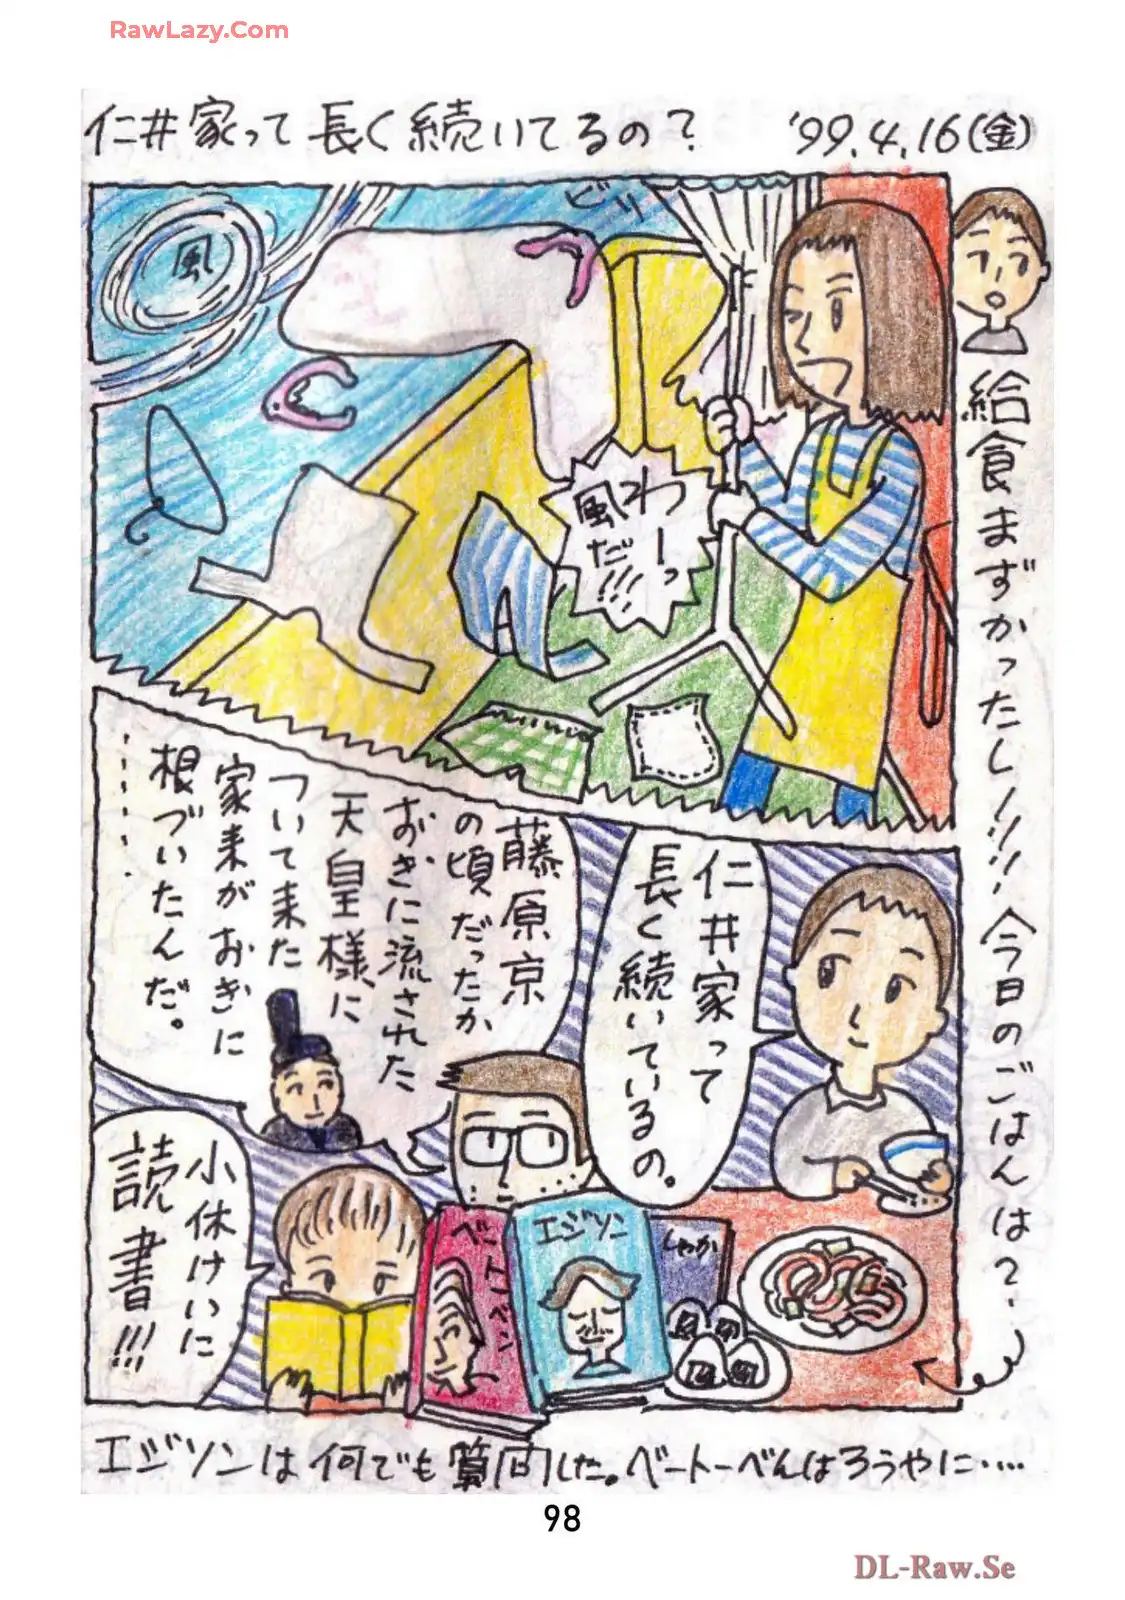 RawLazy.Com
仁井家って長く続いてるの？
'99.4.16(金)
給食まずかったしⅠ/Ⅰ/Ⅰ/今日のごはんは？
風
ビリ
わーっ
風だ!!!
仁井家って
長く続いているの。
藤原京
の頃だったか
おきに流された
天皇様に
ついて来た
家来がおきに
根づいたんだ。
‥‥‥
小休けいに
読書!!!
ベートーベン
エジソン
しゃか
エジソンは何でも質問した。ベートーべんはろうやに‥‥
98
DL-Raw.Se